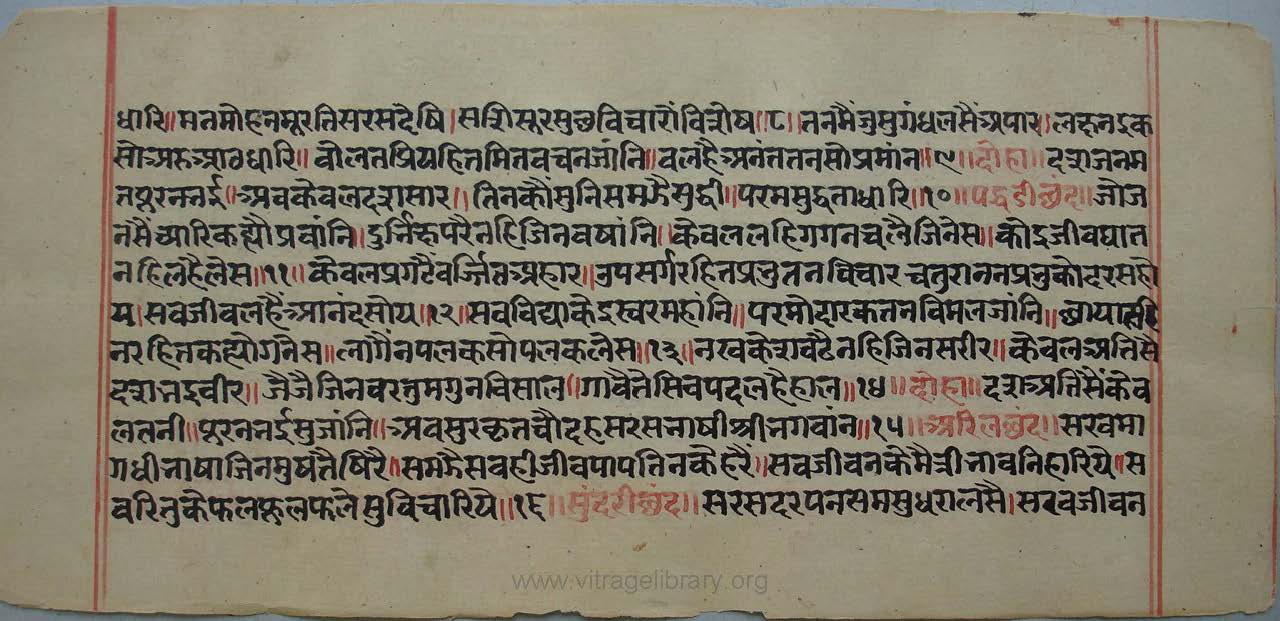 धारि॥ मनमोहनमूरतिसरसदेषि। ससिसूरसुछविचारौंविशेष।८। तनमैंजुसुगंधलसैंअपार। लक्षनइक
सोअरुआठधारि॥ बोलतप्रियहितमितवचनजांनि॥ बलहैअनंततनसोप्रमांन॥९॥ दोहा॥ दशजनम
तपूरनभई॥ अवकेवलदशसार॥ तिनकौंसुनिसमझैसुधी॥ परमसुद्धताधारि॥१०॥ पद्धडीछंद॥ जोज
नसैंच्यारिकह्यौप्रवांनि॥ दुर्भिक्षपरैनहिजिनवषांनि॥ केवललहिगगनचलैजिनेस॥ कोइजीवघात
नहिलहैलेस॥११॥ केवलप्रगटैंवर्जितअहार॥ उपसर्गरहितप्रभुतनविचार चतुराननप्रभुकोदरसहो
य। सवजीवलहैंआनंदसोय॥१२॥ सवविद्याकेइस्वरमहांनि॥ परमोदारकतनविमलजांनि॥ छायातही
नरहितकह्योगनेस॥ लागैंनपलकसोपलकलेस॥१३॥ नखकेशवढैनहिजिनसरीर॥ केवलअतिसै
दशभइवीर॥ जैजैजिनवरतुमगुनविसाल॥ गावैतेसिवपदलहैहाल॥१४॥ दोहा॥ दशअतिसैंकेव
लतनी॥ पूरनभईसुजांनि॥ अवसुरकृतचौदहसरसभाषीश्रीभगवांन॥१५॥ अरिलछंद॥ सरवमा
गधीभाषाजिनमुषतैषिरै॥ समझैसवहीजीवपापतिनकेहरै॥ सवजीवनकेमैत्रीभावनिहारिये॥ स
वरितुकेफलफूलफलेसुविचारिये॥१६॥ सुंदरीछंद॥ सरसदरपनसमसुधरालसै। सरवजीवन
www.vitragelibrary.org